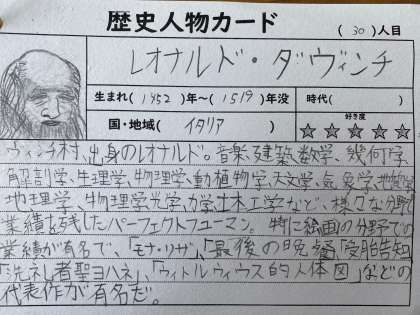 歴史人物カード
(30)人目
レオナルド・ダヴィンチ
生まれ(1452)年〜(1519)年没
時代( )
国・地域(イタリア)
好き度
☆☆☆☆☆
ヴィンチ村、出身のレオナルド。音楽、建築、数学、幾何学、
解剖学、生理学、物理学、動植物学、天文学、気象学、地質学
地理学、物理学光学、力学、土木工学など、様々な分野で
業績を残したパーフェクトヒューマン。特に絵画の分野での
業績が有名で、「モナ・リザ」、「最後の晩餐」、「受胎告知」
「洗礼者聖ヨハネ」、「ウィトルウィウス的人体図」などの
代表作が有名だ。